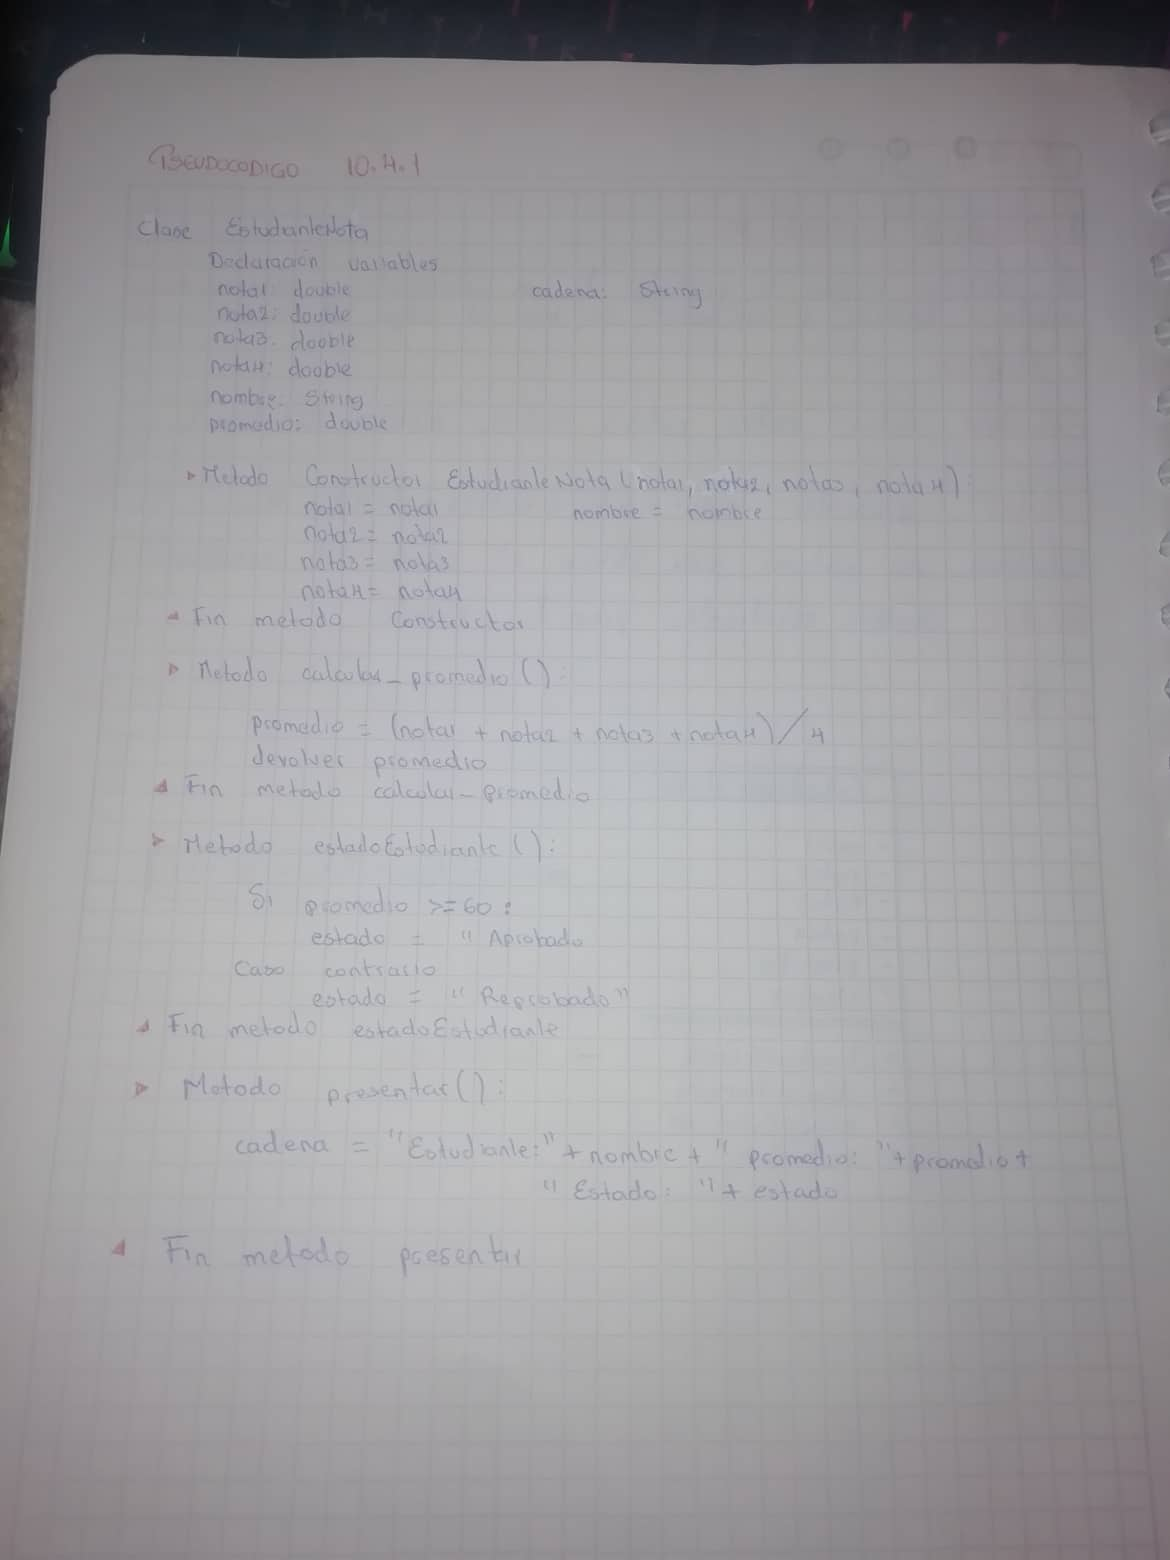 PSEUDOCODIGO 10.4.1
Clase EstudianteNota
Declaración variables
nota1: double cadena: String
nota2: double
nota3: dooble
nota4: dooble
nombre: String
promedio: double
Metodo Constructor EstudianteNota (nota1, nota2, nota3, nota4):
nota1 = nota1 nombre = nombre
nota2 = nota2
nota3 = nota3
nota4 = nota4
Fin metodo Constructor
Metodo calcular_promedio():
promedio = (nota1 + nota2 + nota3 + nota4)/4
devolver promedio
Fin metodo calcular_promedio
Metodo estadoEstudiante():
Si promedio >=60:
estado = "Aprobado
Caso contrario
estado = "Reprobado"
Fin metodo estadoEstudiante
Metodo presentar():
cadena = "Estudiante:" + nombre + " promedio: " + promedio +
" Estado: " + estado
Fin metodo presentar